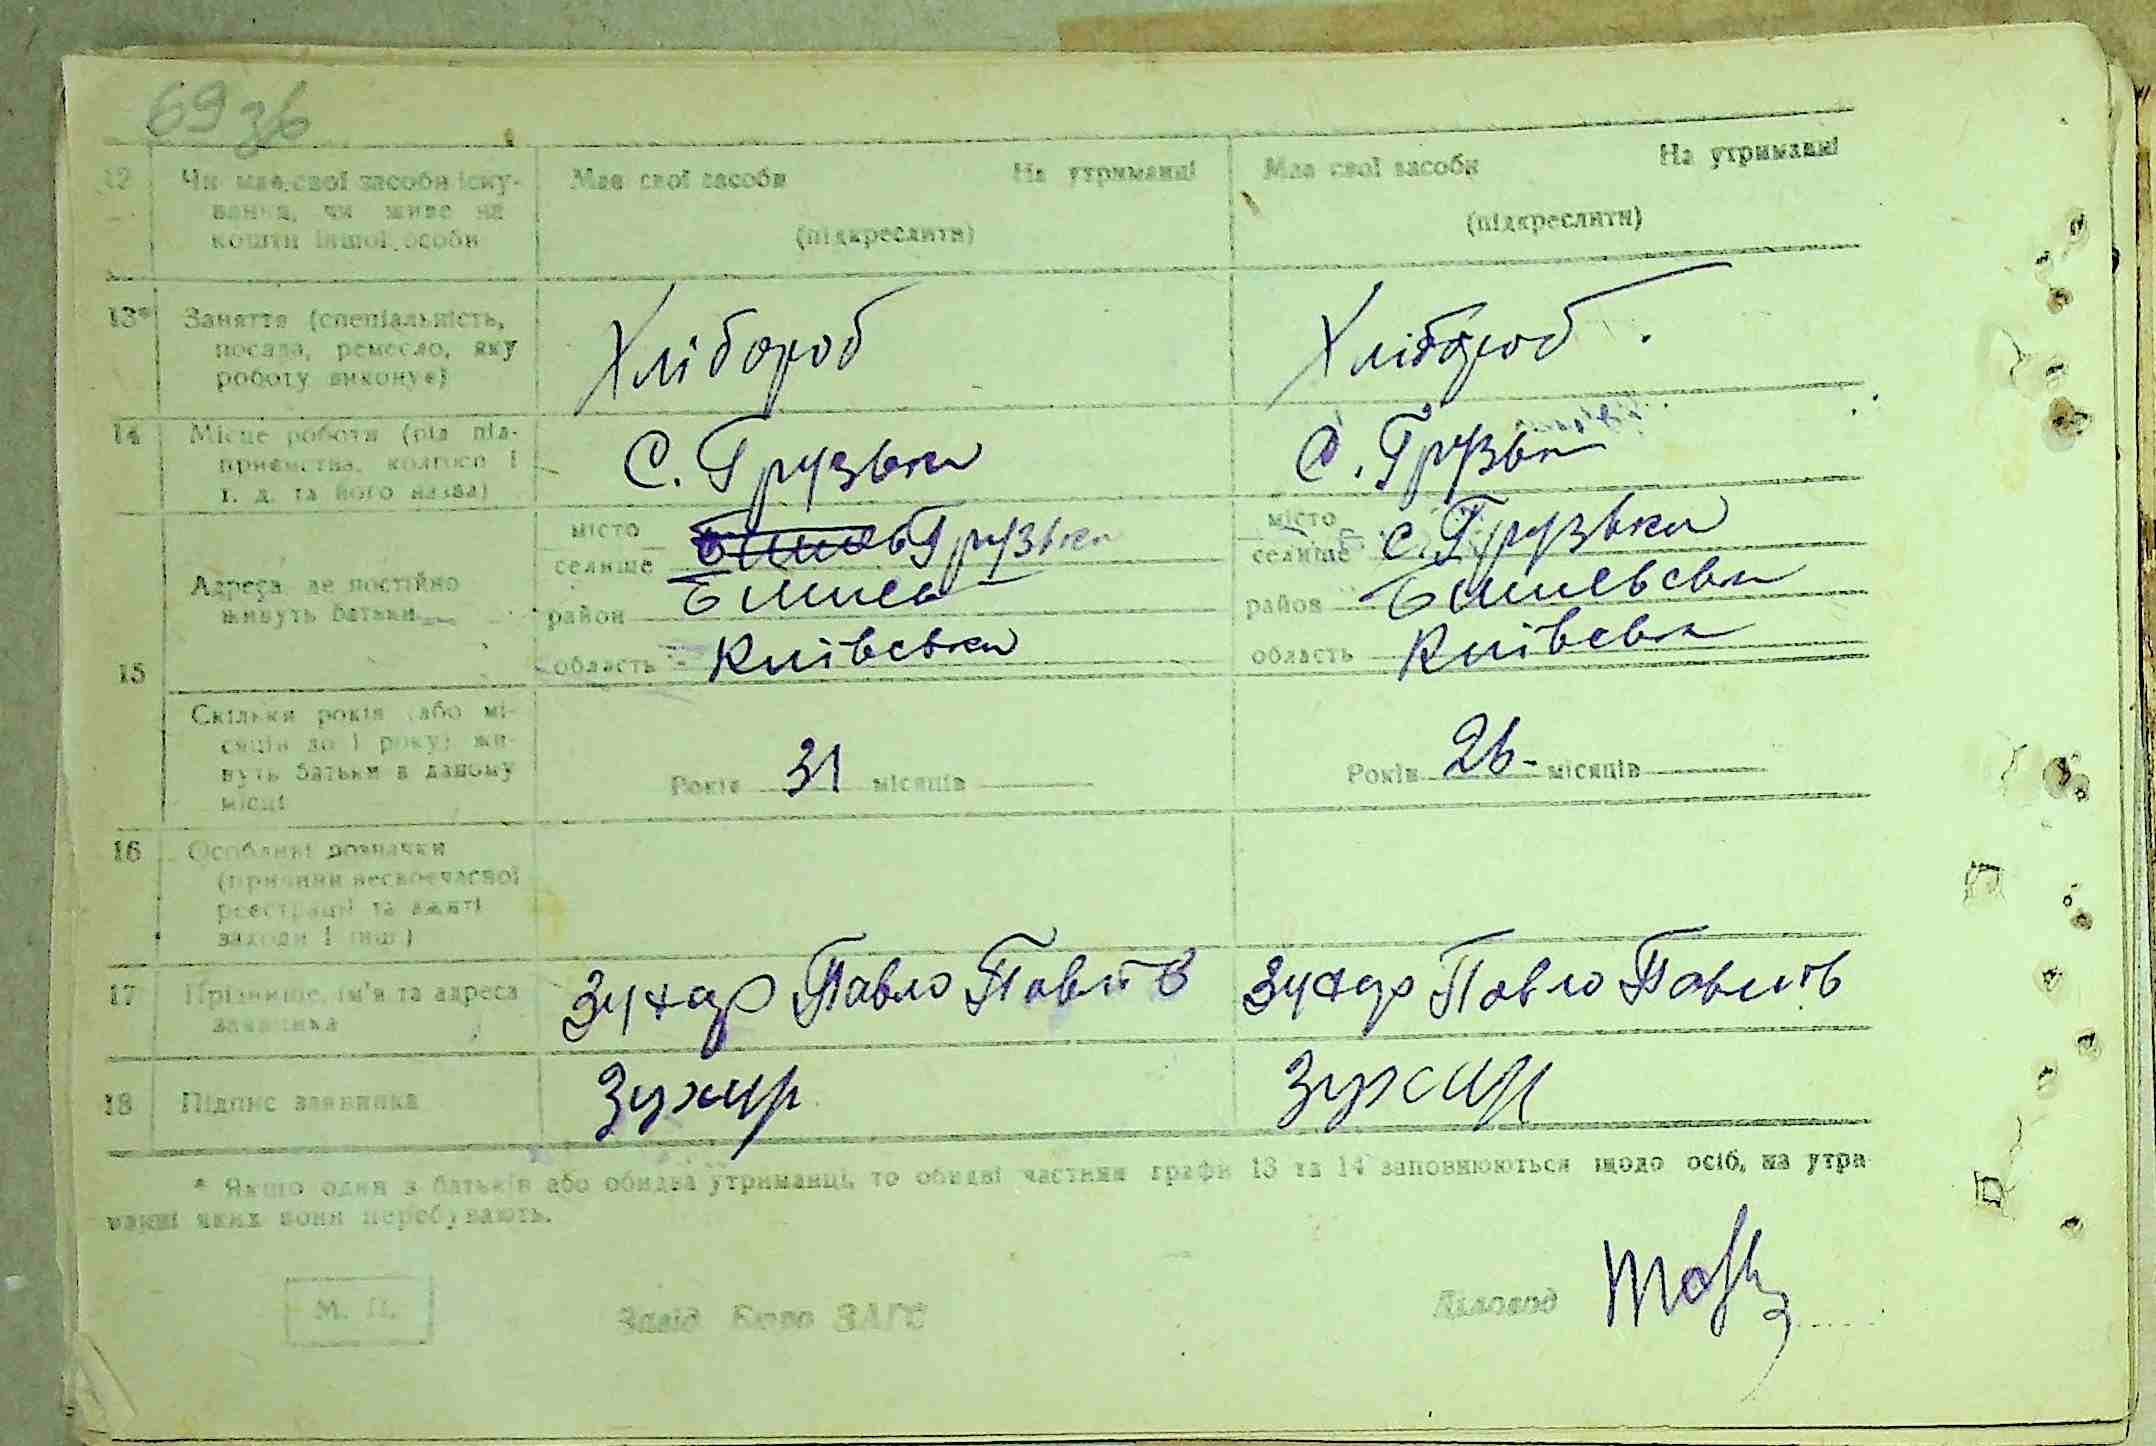 69 зв
12 Чи має свої засоби існу-
вання, чи живе на
кошти іншої особи
Має свої засоби На утриманні
(підкреслити)
Має свої засоби На утриманні
(підкреслити)
13* Заняття (спеціальність,
посада, ремесло, яку
роботу виконує)
Хлібороб
Хлібороб.
14 Місце роботи (
приємства, колгосп і
т. д. та його назва)
С. Грузька
С. Грузьк
15 Адреса де постійно
живуть батьки
місто
селище Грузька
район
область Київська
місто
селище с. Грузька
район Бишевськ
область Київськ
Скільки років (або мі-
сяців до 1 року) жи-
вуть батьки в даному
місці
Років 31 місяців
Років 26 - місяців
16 Особливі розначки
(причини несвоєчасної
реєстрації та вжиті
заходи і інш.)
17 Прізвище, ім'я та адреса
заявника
Павло Павлів
Павло Павлів
18 Підпис заявника
* Якщо один з батьків або обидва утриманці, то обидві частини графи 13 та 14 заповнюються щодо осіб, на утри-
манні яких вони перебувають.
М. П.
Завід Бюро ЗАГС
Діловод